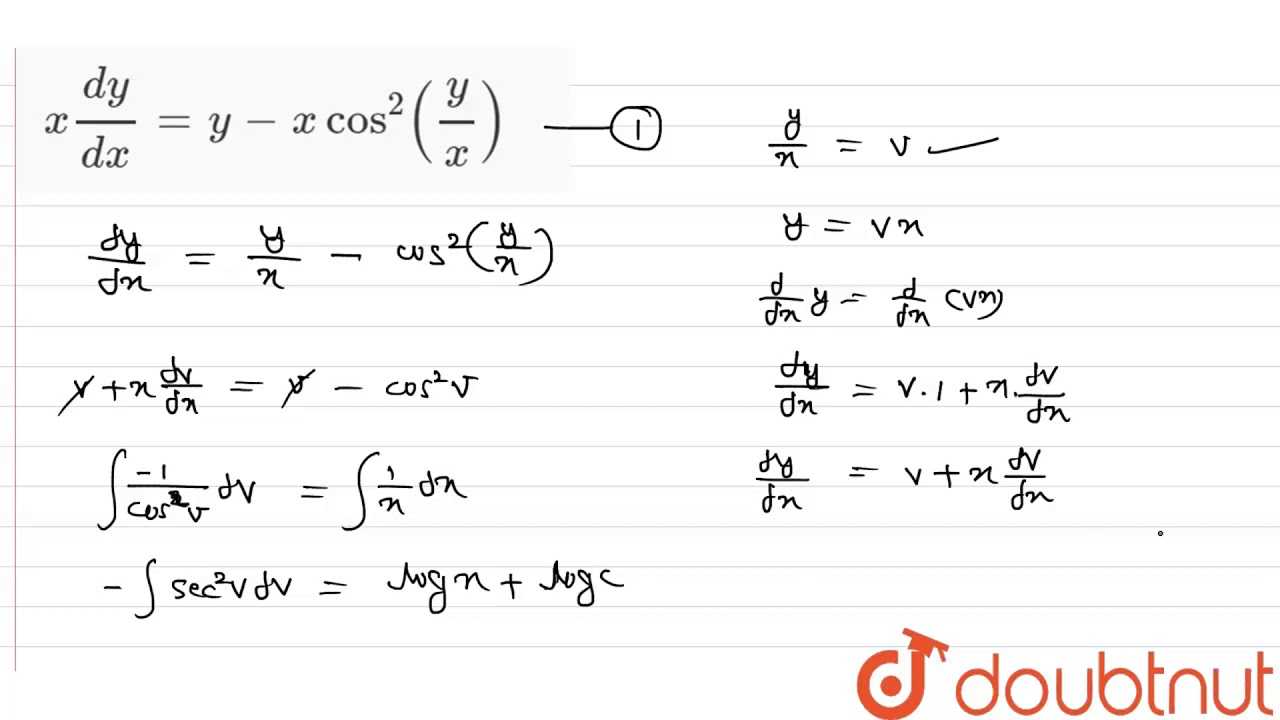 x dy/dx = y − x cos²(y/x) —— ①
dy/dx = y/x − cos²(y/x)
v + x dv/dx = v − cos²v
∫ −1/cos²v dv = ∫ 1/x dx
− ∫ sec²v dv = log x + log c
y/x = v
y = vx
d/dx y = d/dx (vx)
dy/dx = v·1 + x·dv/dx
dy/dx = v + x dv/dx
doubtnut